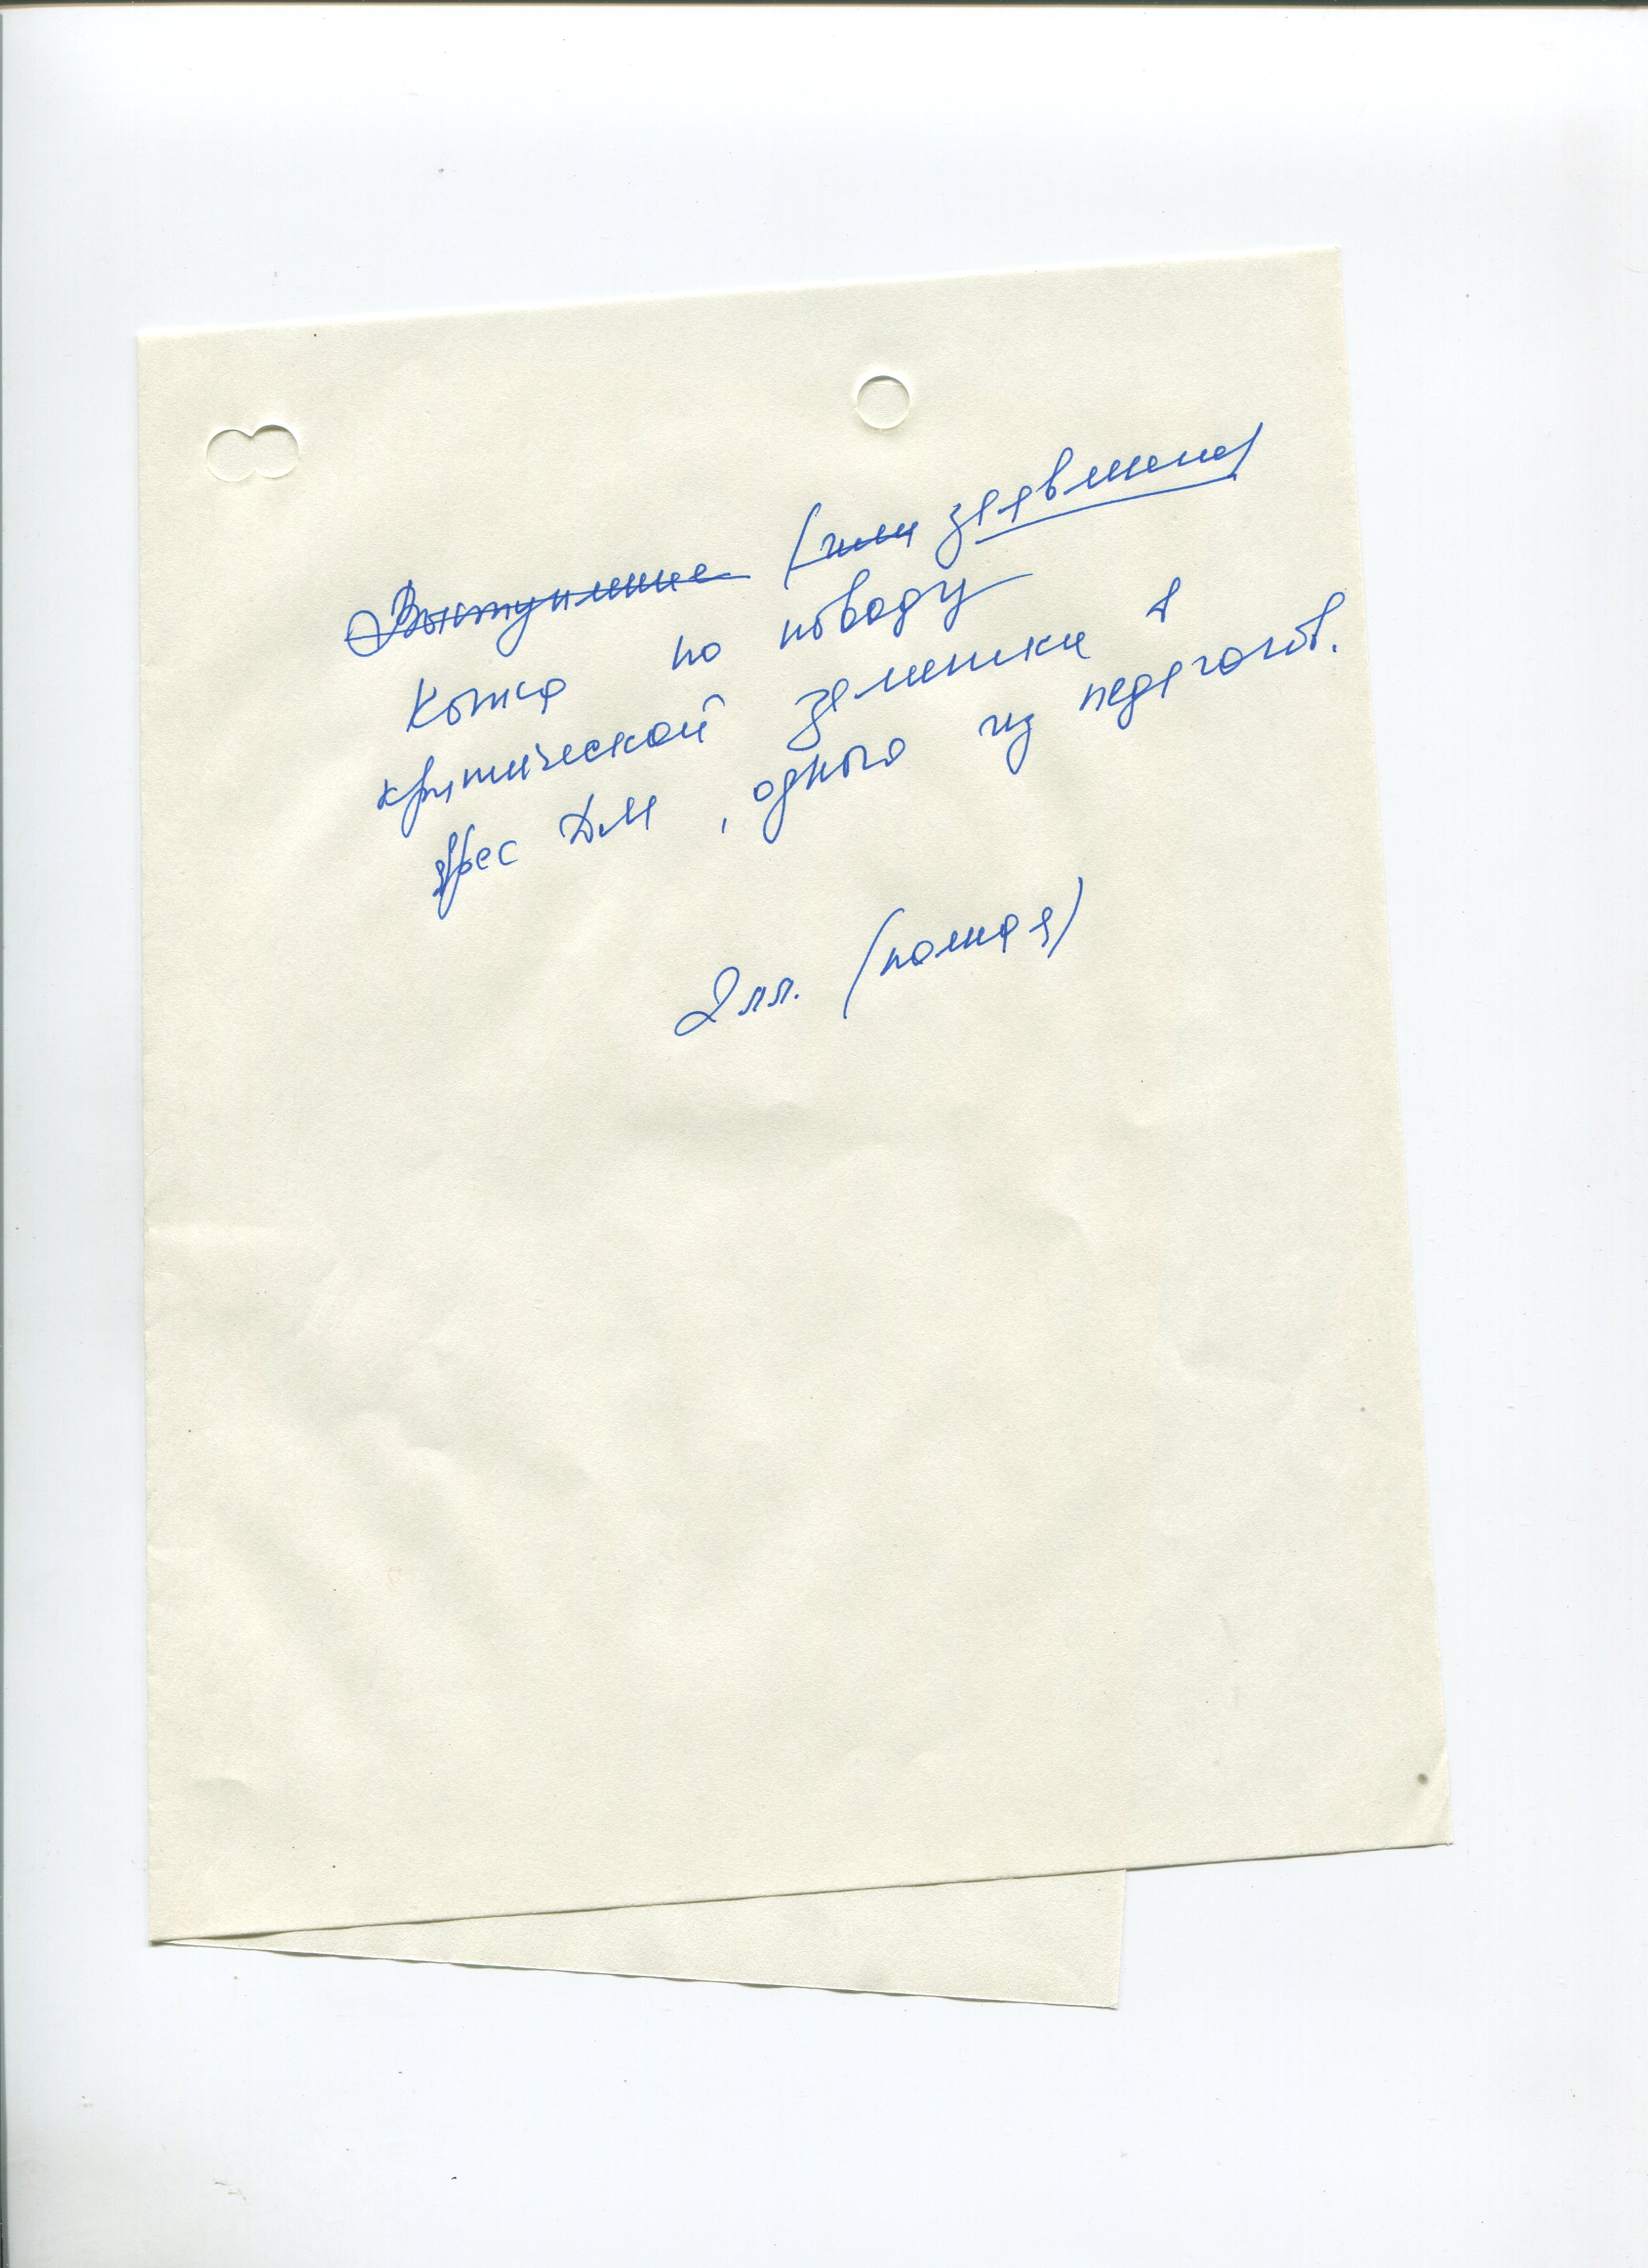 Выступление (или заявление)
Котца по поводу
критической заметки в
адрес ДМ, одного из педагогов.
2 лл. (полная)